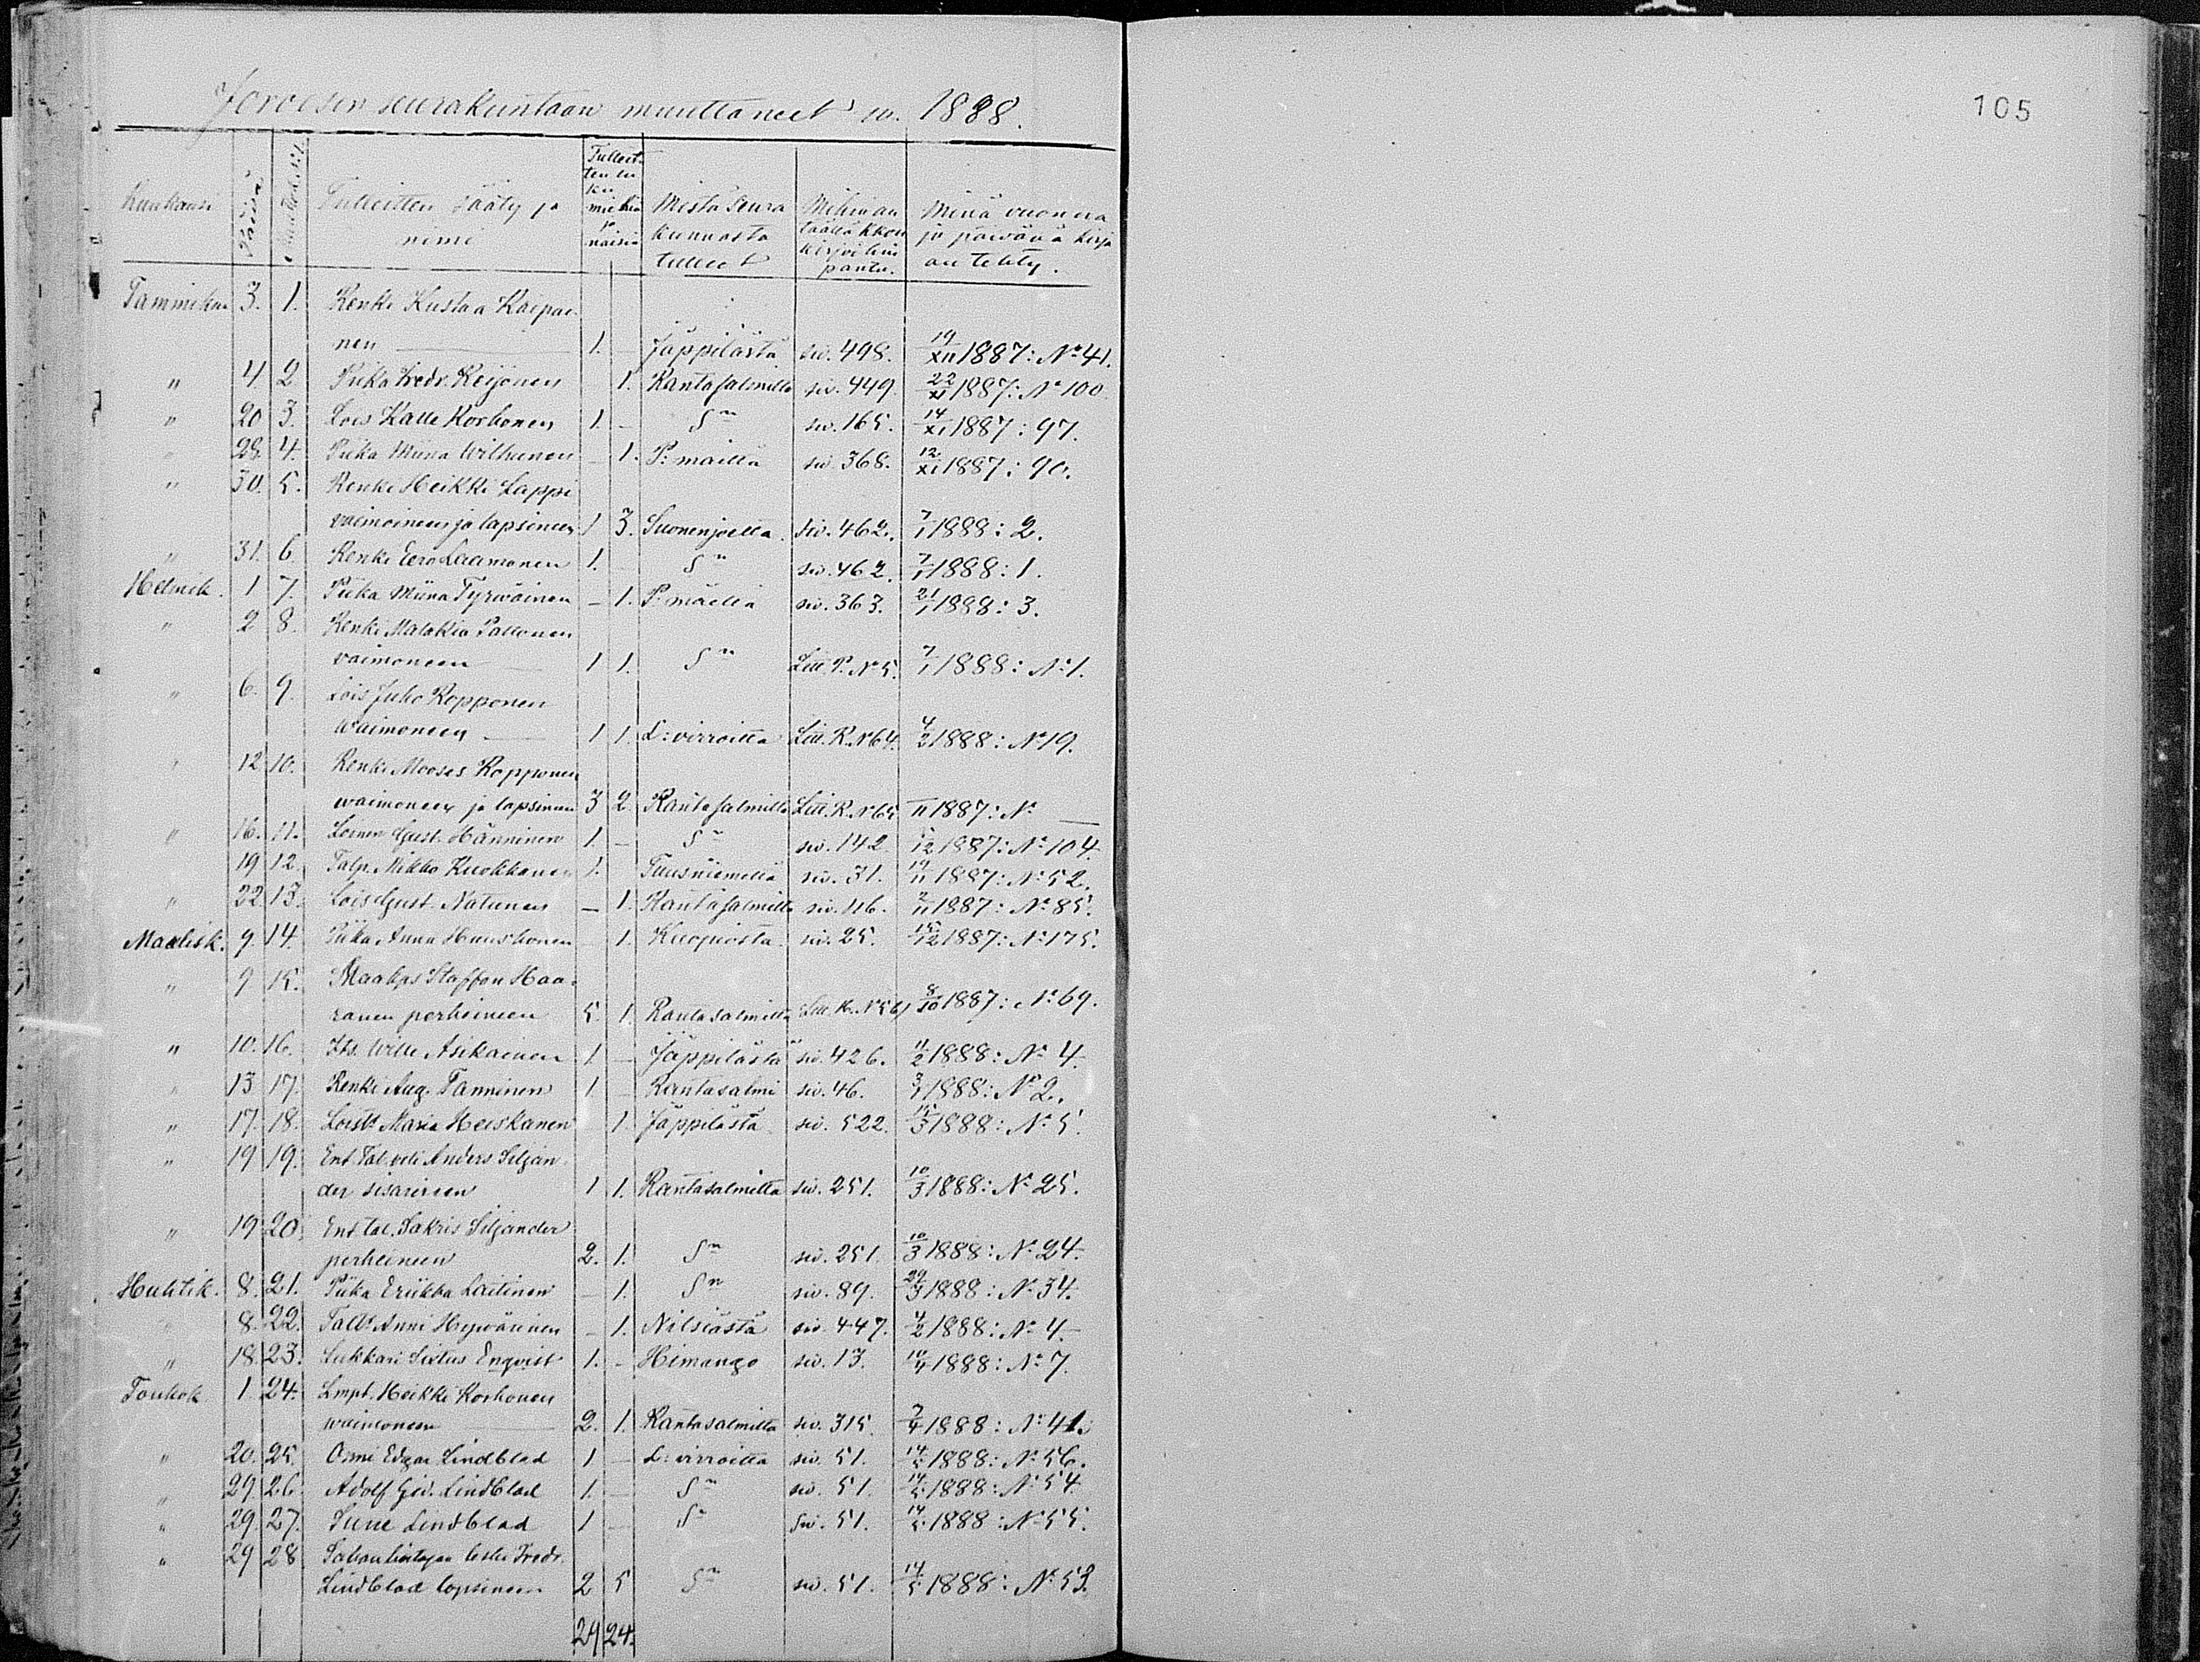 Joroisen seurakuntaan muuttaneet w. 1888.
105
Kuukausi Päivä Tulleitten Sääty ja nimi Tulleitten luku miehiä ja naisia Mistä Seurakunnasta tulleet Mihinkä täällä Kkon kirjoihin pantu. Minä vuonna ja päivänä kirja on tehty.
Tammikuu 3. 1. Renki Kustaa Kaipai-
nen 1. — Jäppilästä siv. 498. 19/XII 1887: No 41.
" 4 2 Piika Fredr. Reijonen — 1. Rantasalmilta siv. 449. 22/XI 1887: No 100.
" 20 3. Lois Kalle Korhonen 1. — Sn siv. 165. 14/XI 1887: 97.
" 28. 4. Piika Miina Wilhunen — 1. P: mäiltä siv. 368. 12/XI 1887: 90.
" 30. 5. Renki Heikki Lappi
vaimoineen ja lapsineen 1 3. Suonenjoelta siv. 462. 7/1 1888: 2.
" 31. 6. Renki Eero Laamonen 1. — Sn siv. 462. 7/1 1888: 1.
Helmik. 1 7. Piika Miina Tyrwäinen — 1. P: mäeltä siv. 363. 21/1 1888: 3.
" 2 8. Renki Malakia Pallonen
vaimoneen 1 1. Sn Litt. P. No 5. 7/1 1888: No 1.
" 6. 9. Lois Juho Ropponen
waimoneen 1 1. L: virroilta Litt. R. No 64. 4/2 1888: No 19.
" 12 10. Renki Mooses Ropponen
waimoneen ja lapsineen 3 2. Rantasalmilta Litt. R. No 65 /11 1887: No —
" 16. 11. Loinen Gust. Hänninen 1. — Sn siv. 142 /12 1887: No 104.
" 19 12. Talp. Mikko Kuokkanen 1. Tuusniemeltä siv. 31. 19/11 1887: No 52.
" 22 13. Lois Gust. Natunen — 1. Rantasalmilta siv. 46. 2/11 1887: No 85.
Maalisk. 9. 14. Piika Anna Huuskonen 1. Kuopiosta siv. 25. 15/12 1887: No 175.
" 9 15. Maakps Staffan Haa-
ranen perheineen 5. 1. Rantasalmilta Litt. H. No 56 8/10 1887: No 69.
" 10. 16. Its. Wille Asikainen 1 — Jäppilästä siv. 426. 4/2 1888: No 4.
" 13 17. Renki Aug. Tanninen 1 — Rantasalmi siv. 46. 3/1 1888: No 2.
" 17. 18. Maria Heiskanen 1. Jäppilästä siv. 522. 15/3 1888: No 5.
" 19 19. Ent. Tal. veli Anders Siljan-
der sisarineen 1 1. Rantasalmilta siv. 251. 10/3 1888: No 25.
" 19 20. Ent. tal. Sakris Siljander
perheineen 2. 1. Sn siv. 251. 10/3 1888: No 24.
Huhtik. 8. 21. Piika Eriikka Laitinen — 1. Sn siv. 89. 29/3 1888: No 34.
8. 22. Anni Hyvärinen — 1. Nilsiästä siv. 447. 4/2 1888: No 4.
" 18. 23. Lukkari Sixtus Enqvist 1. — Himango siv. 13. 10/4 1888: No 7.
Toukok 1 24. Lmpt. Heikki Korhonen
waimoneen 2. 1. Rantasalmilta siv. 315. 7/4 1888: No 41.
" 20. 25. Onni Edgar Lindblad 1 — L: virroilta siv. 51. 14/5 1888: No 56.
" 29. 26. Adolf Gid. Lindblad 1. — Sn siv. 51. 14/5 1888: No 54.
" 29. 27. Sune Lindblad 1 — Sn siv. 51. 14/5 1888: No 55.
" 29 28 leski Fredr.
Lindblad lapsineen 2 5 Sn siv. 51. 14/5 1888: No 53.
29 24.